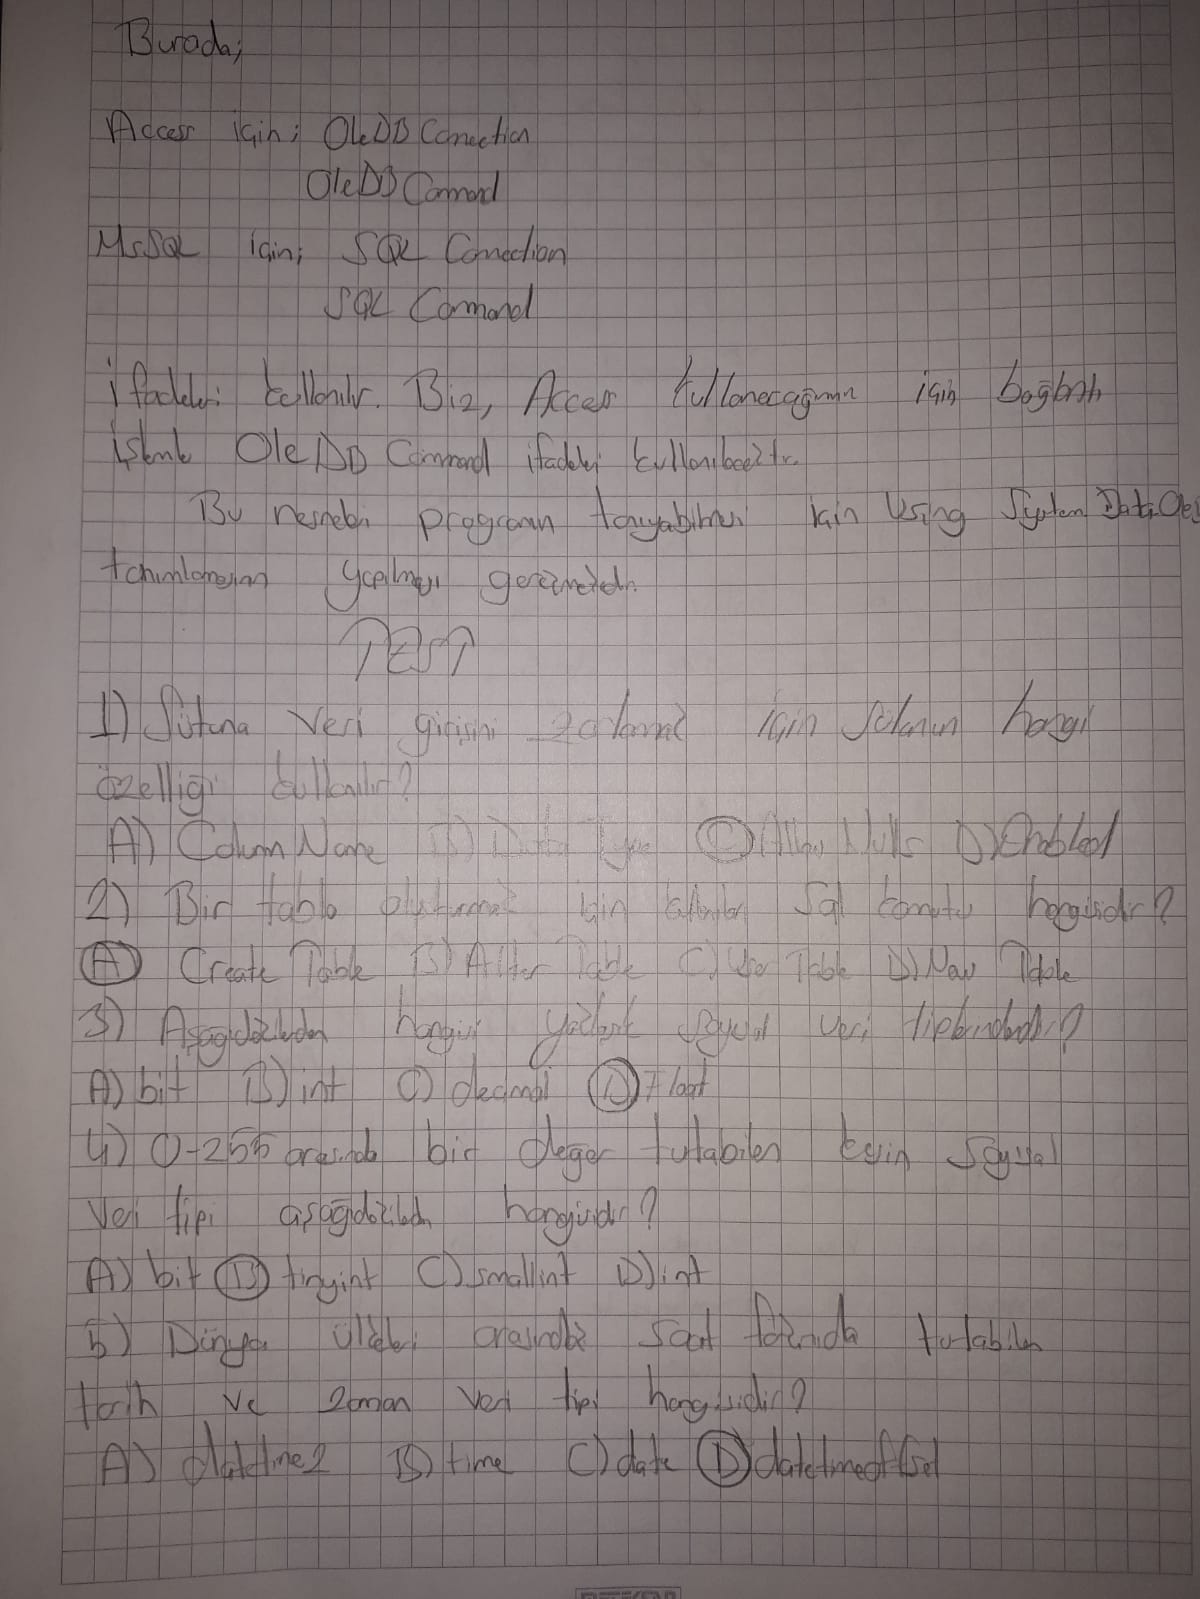 Burada;
Access için; OleDB Conection
OleDB Command
MsSQL için; SQL Conection
SQL Command
ifadeleri kullanılır. Biz, Access kullanacağımız için bağlantı
işlemle OleDB Command ifadeleri kullanılacaktır.
Bu nesneleri program tanıyabilmesi için Using System Data Ole
tanımlamasının yapılması gerekmektedir.
TEST
1) Sütuna veri girişini zorlamak için sütunun hangi
özelliği kullanılır?
A) Colum Name B) Data Type C) Allow Nulls D) Enabled
2) Bir tablo oluşturmak için kullanılan Sql komutu hangisidir?
A) Create Table B) Alter Table C) Use Table D) New Table
3) Aşağıdakilerden hangisi yaklaşık sayısal veri tiplerindendir?
A) bit B) int C) decimal D) Float
4) 0-255 arasında bir değer tutabilen kesin sayısal
veri tipi aşağıdakilerden hangisidir?
A) bit B) tinyint C) smallint D) int
5) Dünya ülkeleri arasındaki saat farkınıda tutabilen
tarih ve zaman veri tipi hangisidir?
A) datetime2 B) time C) date D) datetimeoffset